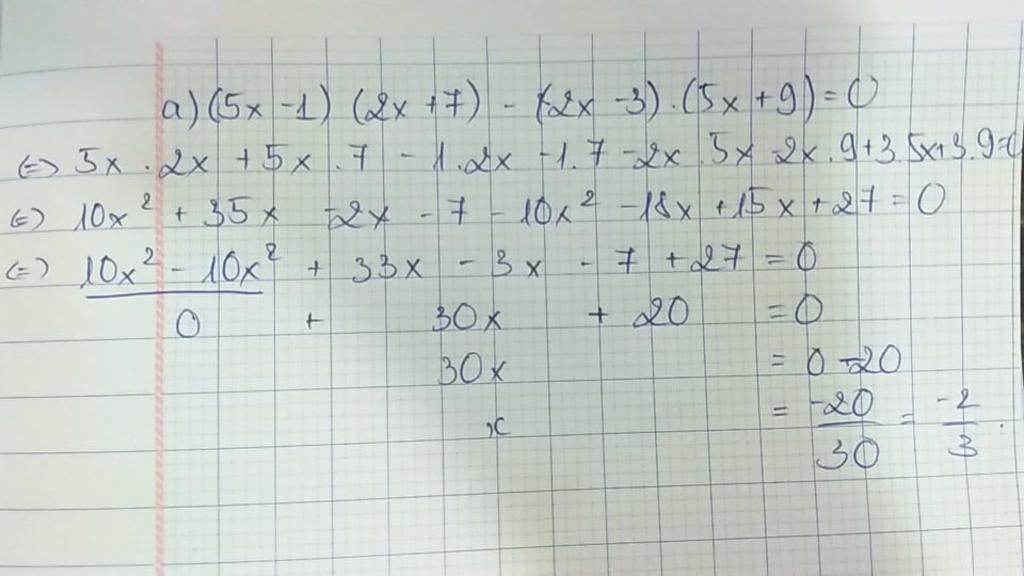 a) (5x -1) (2x +7) - (2x -3).(5x +9) = 0
<=> 5x . 2x + 5x .7 - 1.2x -1.7 -2x .5x -2x.9+3.5x+3.9=0
<=> 10x² + 35x -2x -7 -10x² -18x +15x +27 = 0
<=> 10x² - 10x² + 33x - 3x - 7 +27 = 0
0 + 30x + 20 = 0
30x = 0 -20
x = -20/30 = -2/3 .